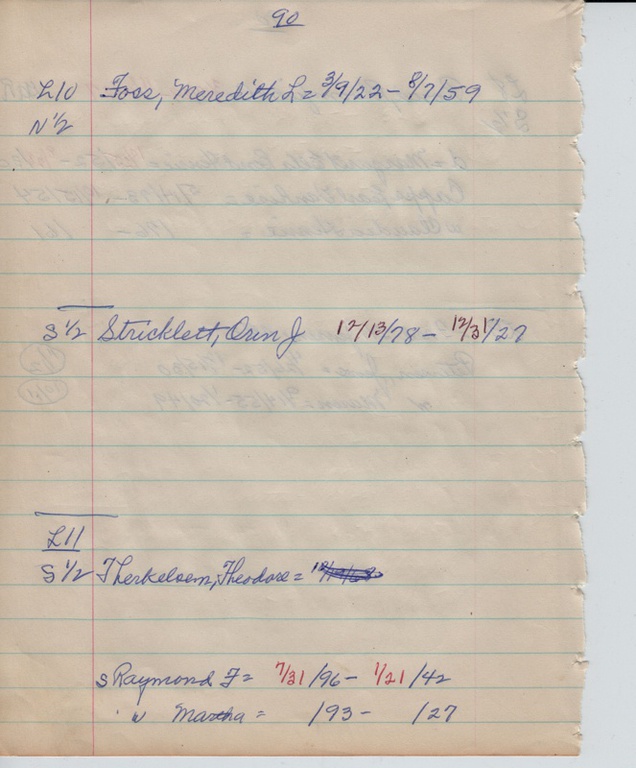 90
L10 Foss, Meredith L = 3/9/22 - 8/7/59
N 1/2
S 1/2 Stricklett, Oren J 12/13/78 - 12/31/27
L11
S 1/2 Therkelsen, Theodore =
S Raymond F = 7/31/96 - 1/21/42
" w Martha = /93 - /27